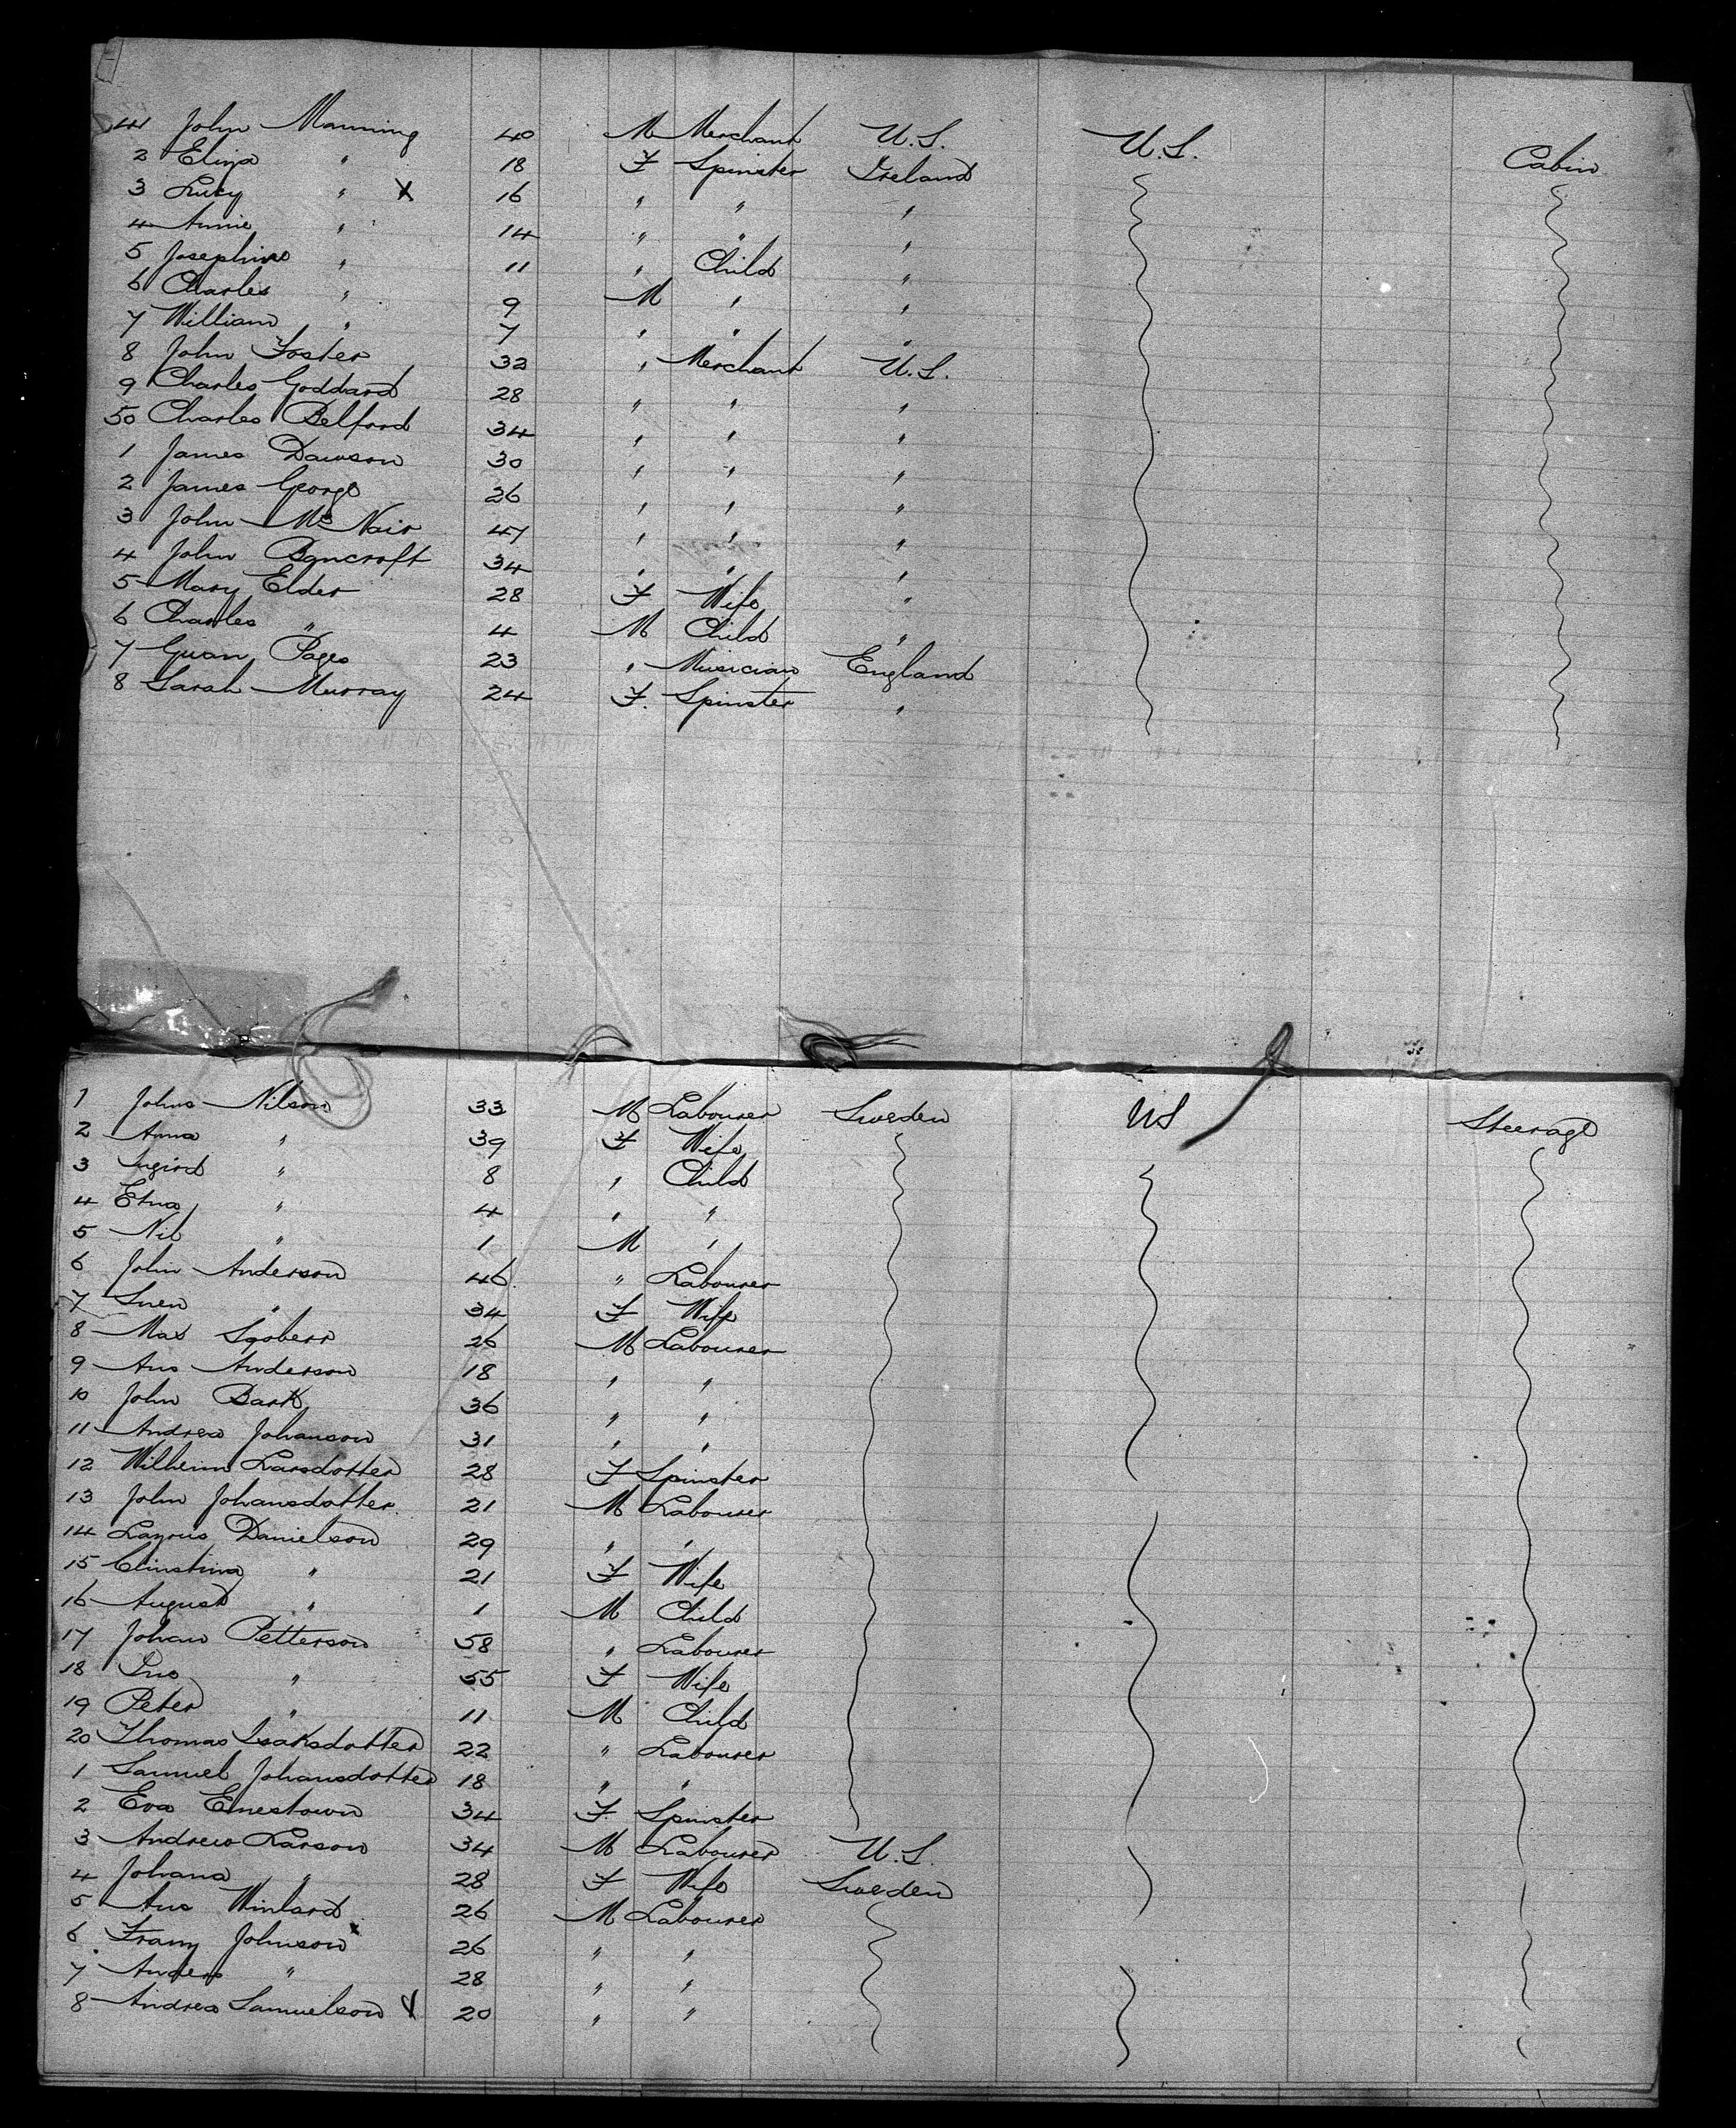 41 John Manning 40 M Merchant U.S. U.S. Cabin
2 Eliza " 18 F Spinster Ireland
3 Lucy " X 16 " " "
4 Annie " 14 " " "
5 Josephine " 11 " Child "
6 Charles " 9 M " "
7 William " 7 " " "
8 John Foster 32 " Merchant U.S.
9 Charles Goddard 28 " " "
50 Charles Belford 34 " " "
1 James Dawson 30 " " "
2 James George 26 " " "
3 John McNair 47 " " "
4 John Bancroft 34 " " "
5 Mary Elder 28 F Wife "
6 Charles " 4 M Child "
7 Pages 23 " Musician England
8 Sarah Murray 24 F. Spinster "
1 Johns Nilson 33 M Labourer Sweden US Steerage
2 Anna " 39 F Wife
3 " 8 " Child
4 " 4 " "
5 Nil " 1 M "
6 John Anderson 46 " Labourer
7 Sven " 34 F Wife
8 Mas 26 M Labourer
9 Ans Anderson 18 " "
10 John Bark 36 " "
11 Andrew Johanson 31 " "
12 Wilhelm Larsdotter 28 F Spinster
13 John Johansdotter 21 M Labourer
14 Danielson 29 " "
15 " 21 F Wife
16 August " 1 M Child
17 Johan Petterson 58 " Labourer
18 " 55 F Wife
19 Peter " 11 M Child
20 Thomas Isaksdotter 22 " Labourer
1 Samuel Johansdotter 18 " "
2 Eva Ernestown 34 F. Spinster
3 Andrew Larson 34 M Labourer U.S.
4 Johana " 28 F Wife Sweden
5 Ans 26 M Labourer
6 Johnson x 26 " "
7 Anders " 28 " "
8 Andrew Samuelson X 20 " "